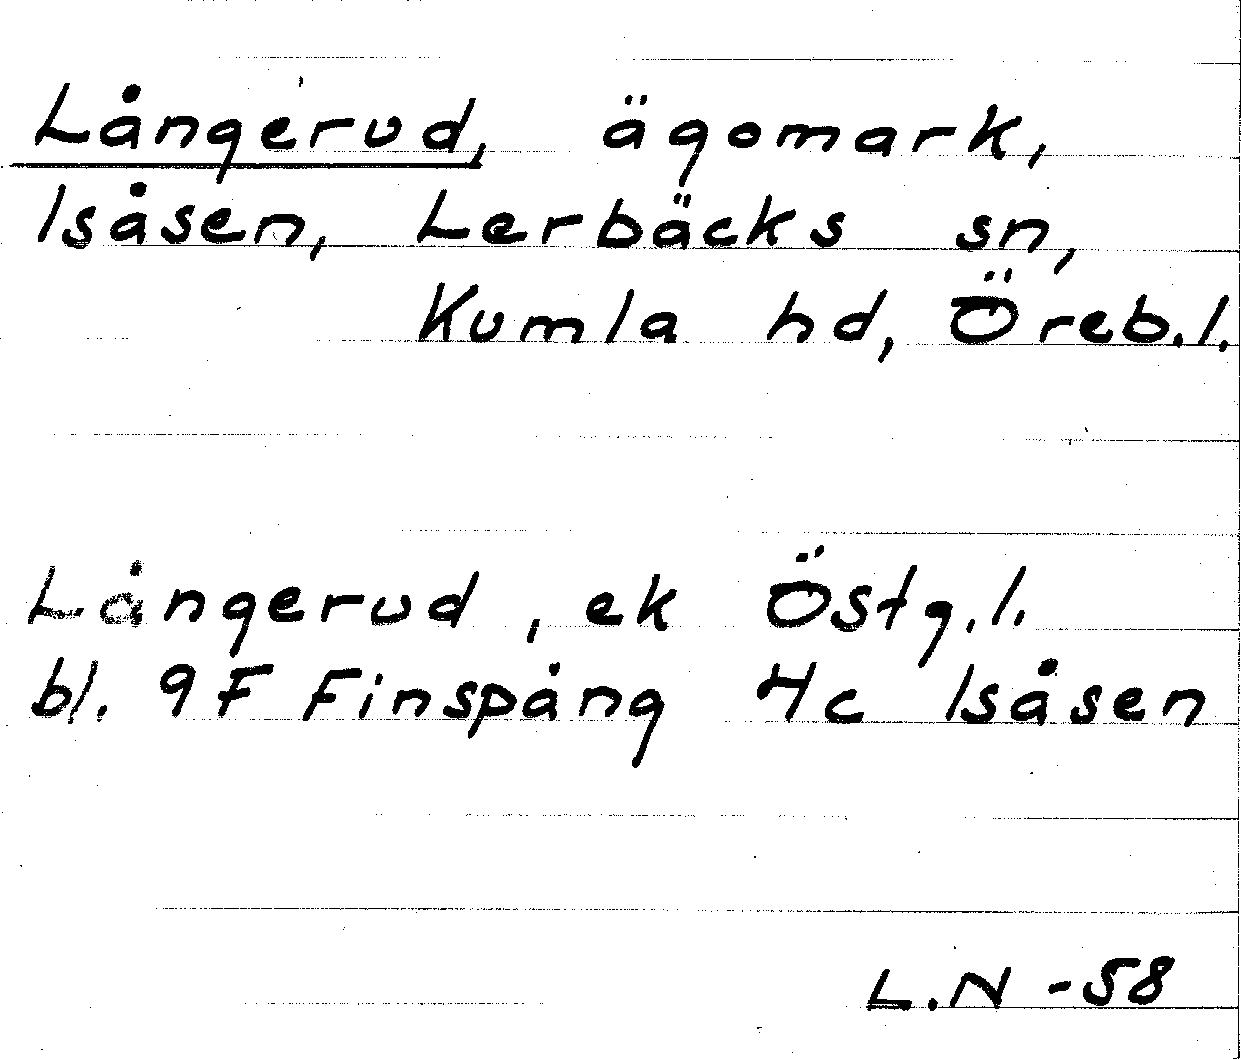 Långerud, ägomark,
Isåsen, Lerbäcks sn,
Kumla hd, Öreb.l.
Långerud, ek Östg.l.
bl. 9F Finspång 4c Isåsen
L.N -58